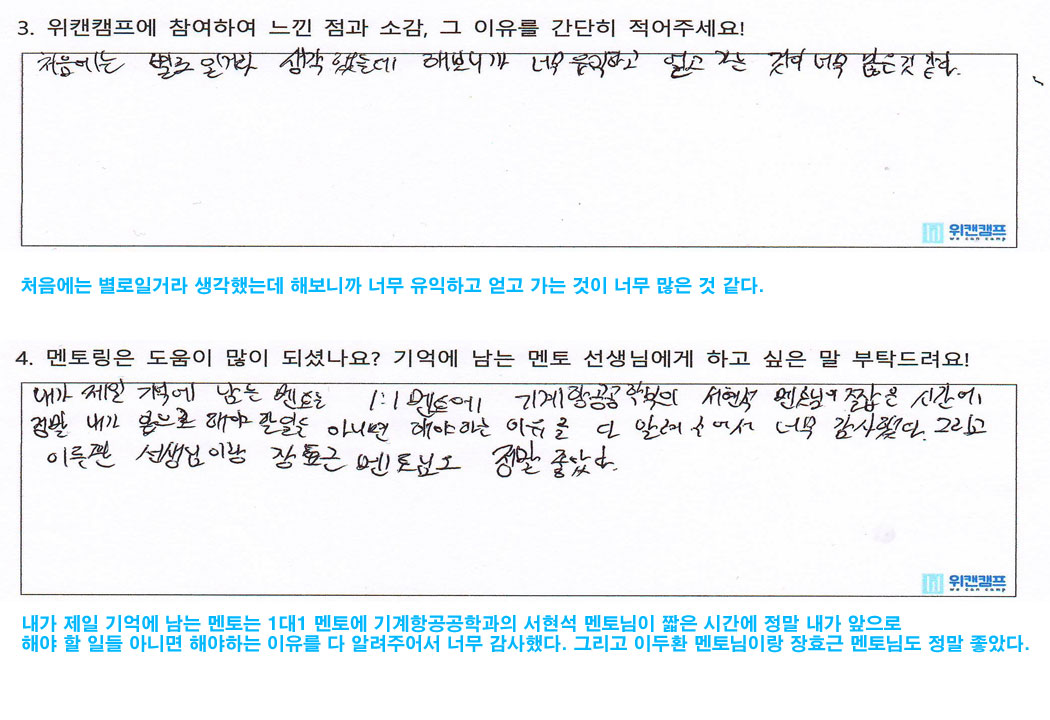 3. 위캔캠프에 참여하여 느낀 점과 소감, 그 이유를 간단히 적어주세요!
처음에는 별로일거라 생각했는데 해보니까 너무 유익하고 얻고 가는 것이 너무 많은것 같다.
위캔캠프
we can camp
처음에는 별로일거라 생각했는데 해보니까 너무 유익하고 얻고 가는 것이 너무 많은 것 같다.
4. 멘토링은 도움이 많이 되셨나요? 기억에 남는 멘토 선생님에게 하고 싶은 말 부탁드려요!
내가 제일 기억에 남는 멘토는 1:1 멘토에 기계항공공학과의 서현석 멘토님이 짧은 시간에
정말 내가 앞으로 해야 할일들 아니면 해야하는 이유를 다 알려주어서 너무 감사했다. 그리고
선생님이랑 장효근 멘토님도 정말 좋았다.
위캔캠프
we can camp
내가 제일 기억에 남는 멘토는 1대1 멘토에 기계항공공학과의 서현석 멘토님이 짧은 시간에 정말 내가 앞으로
해야 할 일들 아니면 해야하는 이유를 다 알려주어서 너무 감사했다. 그리고 이두환 멘토님이랑 장효근 멘토님도 정말 좋았다.